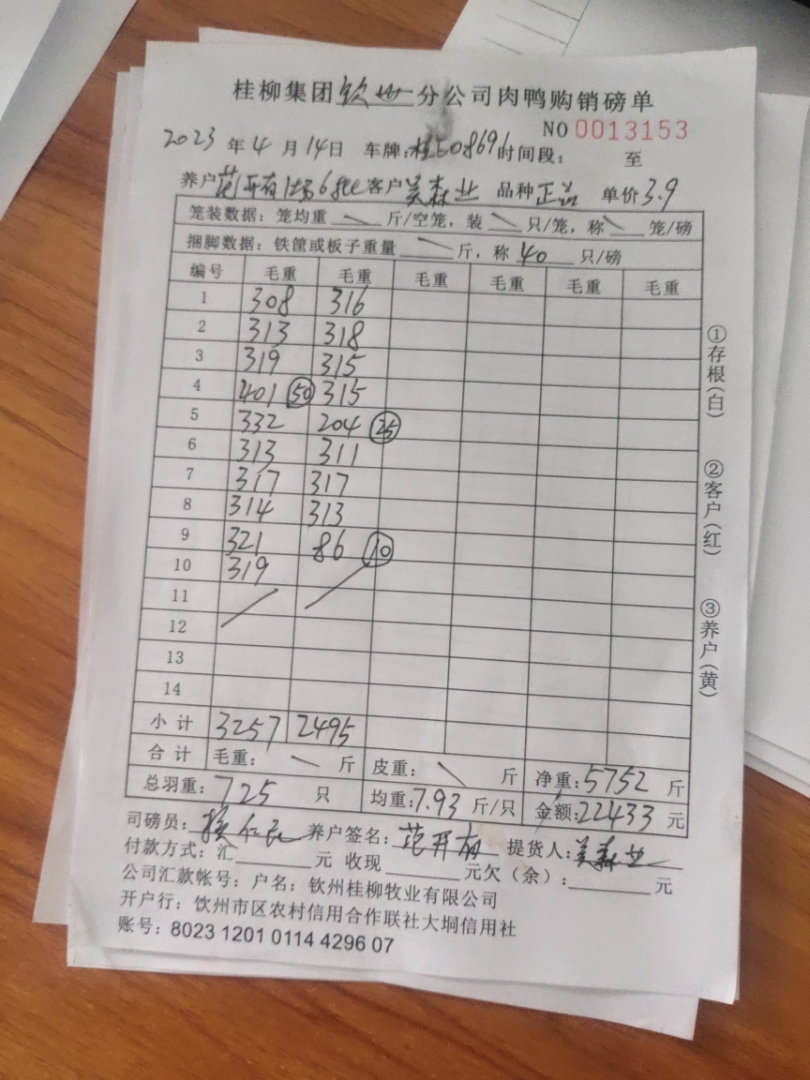 桂柳集团钦州分公司肉鸭购销磅单
NO 0013153
2023年4月14日 车牌:桂E08691 时间段: 至
养户范开有 客户吴森业 品种正品 单价3.9
笼装数据:笼均重 \ 斤/空笼,装 \ 只/笼,称 \ 笼/磅
捆脚数据:铁筐或板子重量 \ 斤,称 40 只/磅
编号 毛重 毛重 毛重 毛重 毛重 毛重
1 308 316
2 313 318
3 319 315
4 401 ㊿ 315
5 332 204 ㉕
6 313 311
7 317 317
8 314 313
9 321 86 ⑩
10 319
11
12
13
14
小计 3257 2495
合计 毛重: \ 斤 皮重: \ 斤 净重:5752 斤
总羽重:725 只 均重:7.93 斤/只 金额:22433 元
司磅员: 养户签名:范开有 提货人:吴森业
付款方式:汇 元 收现 元欠(余): 元
公司汇款帐号:户名:钦州桂柳牧业有限公司
开户行:钦州市区农村信用合作联社大垌信用社
账号:8023 1201 0114 4296 07
①存根(白)
②客户(红)
③养户(黄)